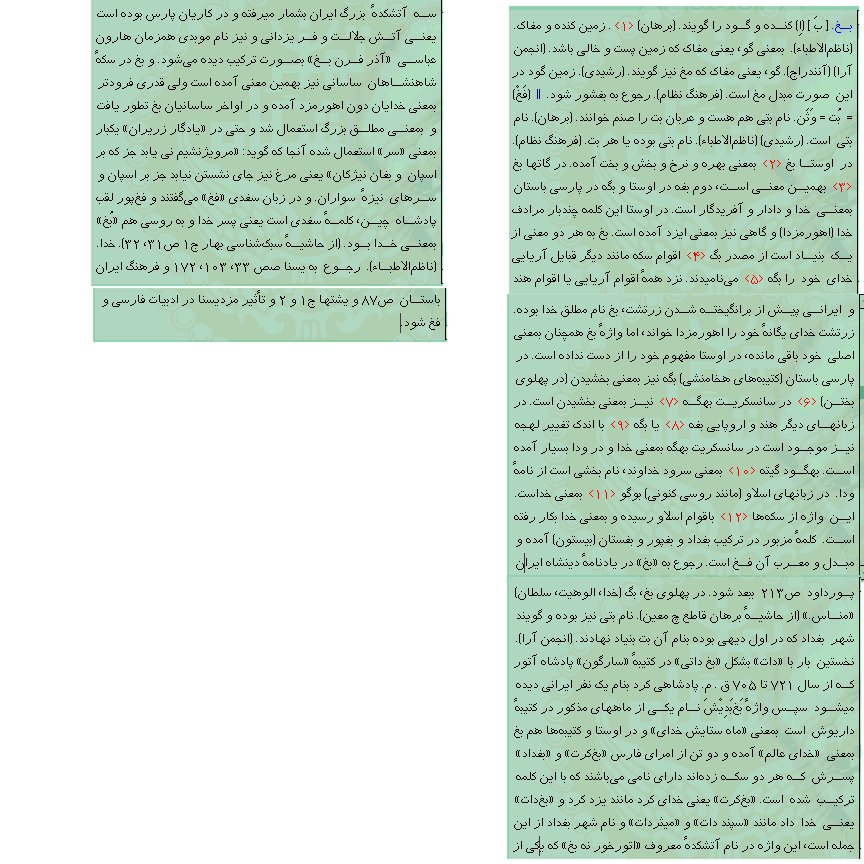 بغ. [ بَ ] (اِ) کنده و گود را گویند. (برهان) <۱> . زمین کنده و مغاک.
(ناظم‌الاطباء). بمعنی گو، یعنی مغاک که زمین پست و خالی باشد. (انجمن
آرا) (آنندراج). گو، یعنی مغاک که مغ نیز گویند. (رشیدی). زمین گود در
این صورت مبدل مغ است. (فرهنگ نظام). رجوع به بغشور شود. || (فَغْ)
= بُت = وثَن. نام بتی هم هست و عربان بت را صنم خوانند. (برهان). نام
بتی است. (رشیدی) (ناظم‌الاطباء). نام بتی بوده یا هر بت. (فرهنگ نظام).
در اوستا بغ <۲> بمعنی بهره و نرخ و بخش و بخت آمده. در گاتها بغ
<۳> بهمین معنی است، دوم بغه در اوستا و بگه در پارسی باستان
بمعنی خدا و دادار و آفریدگار است. در اوستا این کلمه چندبار مرادف
خدا (اهورمزدا) و گاهی نیز بمعنی ایزد آمده است. بغ به هر دو معنی از
یک بنیاد است از مصدر بگ <۴> اقوام سکه مانند دیگر قبایل آریایی
خدای خود را بگه <۵> می‌نامیدند. نزد همهٔ اقوام آریایی یا اقوام هند
و ایرانی پیش از برانگیخته شدن زرتشت، بغ نام مطلق خدا بوده.
زرتشت خدای یگانهٔ خود را اهورمزدا خواند، اما واژهٔ بغ همچنان بمعنی
اصلی خود باقی مانده، در اوستا مفهوم خود را از دست نداده است. در
پارسی باستان (کتیبه‌های هخامنشی) بگه نیز بمعنی بخشیدن (در پهلوی
بختن) <۶> در سانسکریت بهگه <۷> نیز بمعنی بخشیدن است. در
زبانهای دیگر هند و اروپایی بغه <۸> یا بگه <۹> با اندک تغییر لهجه
نیز موجود است در سانسکریت بهگه بمعنی خدا و در ودا بسیار آمده
است. بهگود گیته <۱۰> بمعنی سرود خداوند، نام بخشی است از نامهٔ
ودا. در زبانهای اسلاو (مانند روسی کنونی) بوگو <۱۱> بمعنی خداست.
این واژه از سکه‌ها <۱۲> باقوام اسلاو رسیده و بمعنی خدا بکار رفته
است. کلمهٔ مزبور در ترکیب بغداد و بغپور و بغستان (بیستون) آمده و
مبدل و معرب آن فغ است. رجوع به «بغ» در یادنامهٔ دینشاه ایران
پورداود ص۲۱۳ ببعد شود. در پهلوی بغ، بگ (خدا، الوهیت، سلطان)
«مناس.» (از حاشیهٔ برهان قاطع چ معین). نام بتی نیز بوده و گویند
شهر بغداد که در اول دیهی بوده بنام آن بت بنیاد نهادند. (انجمن آرا).
نخستین بار با «دات» بشکل «بغ داتی» در کتیبهٔ «سارگون» پادشاه آثور
که از سال ۷۲۱ تا ۷۰۵ ق . م. پادشاهی کرد بنام یک نفر ایرانی دیده
میشود سپس واژهٔ بَغَ‌یَدِیْشَ نام یکی از ماههای مذکور در کتیبهٔ
داریوش است بمعنی «ماه ستایش خدای» و در اوستا و کتیبه‌ها هم بغ
بمعنی «خدای عالم» آمده و دو تن از امرای فارس «بغ‌کرت» و «بغداد»
پسرش که هر دو سکه زده‌اند دارای نامی می‌باشند که با این کلمه
ترکیب شده است. «بغ‌کرت» یعنی خدای کرد مانند یزد کرد و «بغ‌دات»
یعنی خدا داد مانند «سپند دات» و «میثردات» و نام شهر بغداد از این
جمله است، این واژه در نام آتشکدهٔ معروف «اتورخور نه بغ» که یکی از
سه آتشکدهٔ بزرگ ایران بشمار میرفته و در کاریان پارس بوده است
یعنی آتش جلالت و فر یزدانی و نیز نام موبدی همزمان هارون
عباسی «آذر فرن بغ» بصورت ترکیب دیده می‌شود. و بغ در سکهٔ
شاهنشاهان ساسانی نیز بهمین معنی آمده است ولی قدری فرودتر
بمعنی خدایان دون اهورمزد آمده و در اواخر ساسانیان بغ تطور یافت
و بمعنی مطلق بزرگ استعمال شد و حتی در «یادگار زریران» یکبار
بمعنی «سر» استعمال شده آنجا که گوید: «مرویژنشیم نی یابد جز که بر
اسپان و بغان نیژکان» یعنی مرغ نیز جای نشستن نیابد جز بر اسپان و
سرهای نیزهٔ سواران. و در زبان سغدی «فغ» می‌گفتند و فغ‌پور لقب
پادشاه چین، کلمهٔ سغدی است یعنی پسر خدا و به روسی هم «بُغ»
بمعنی خدا بود. (از حاشیهٔ سبک‌شناسی بهار ج۱ ص۳۱، ۳۲). خدا.
(ناظم‌الاطباء). رجوع به یسنا صص ۳۳، ۱۰۳، ۱۷۲ و فرهنگ ایران
باستان ص۸۷ و یشتها ج۱ و ۲ و تأثیر مزدیسنا در ادبیات فارسی و
فغ شود.